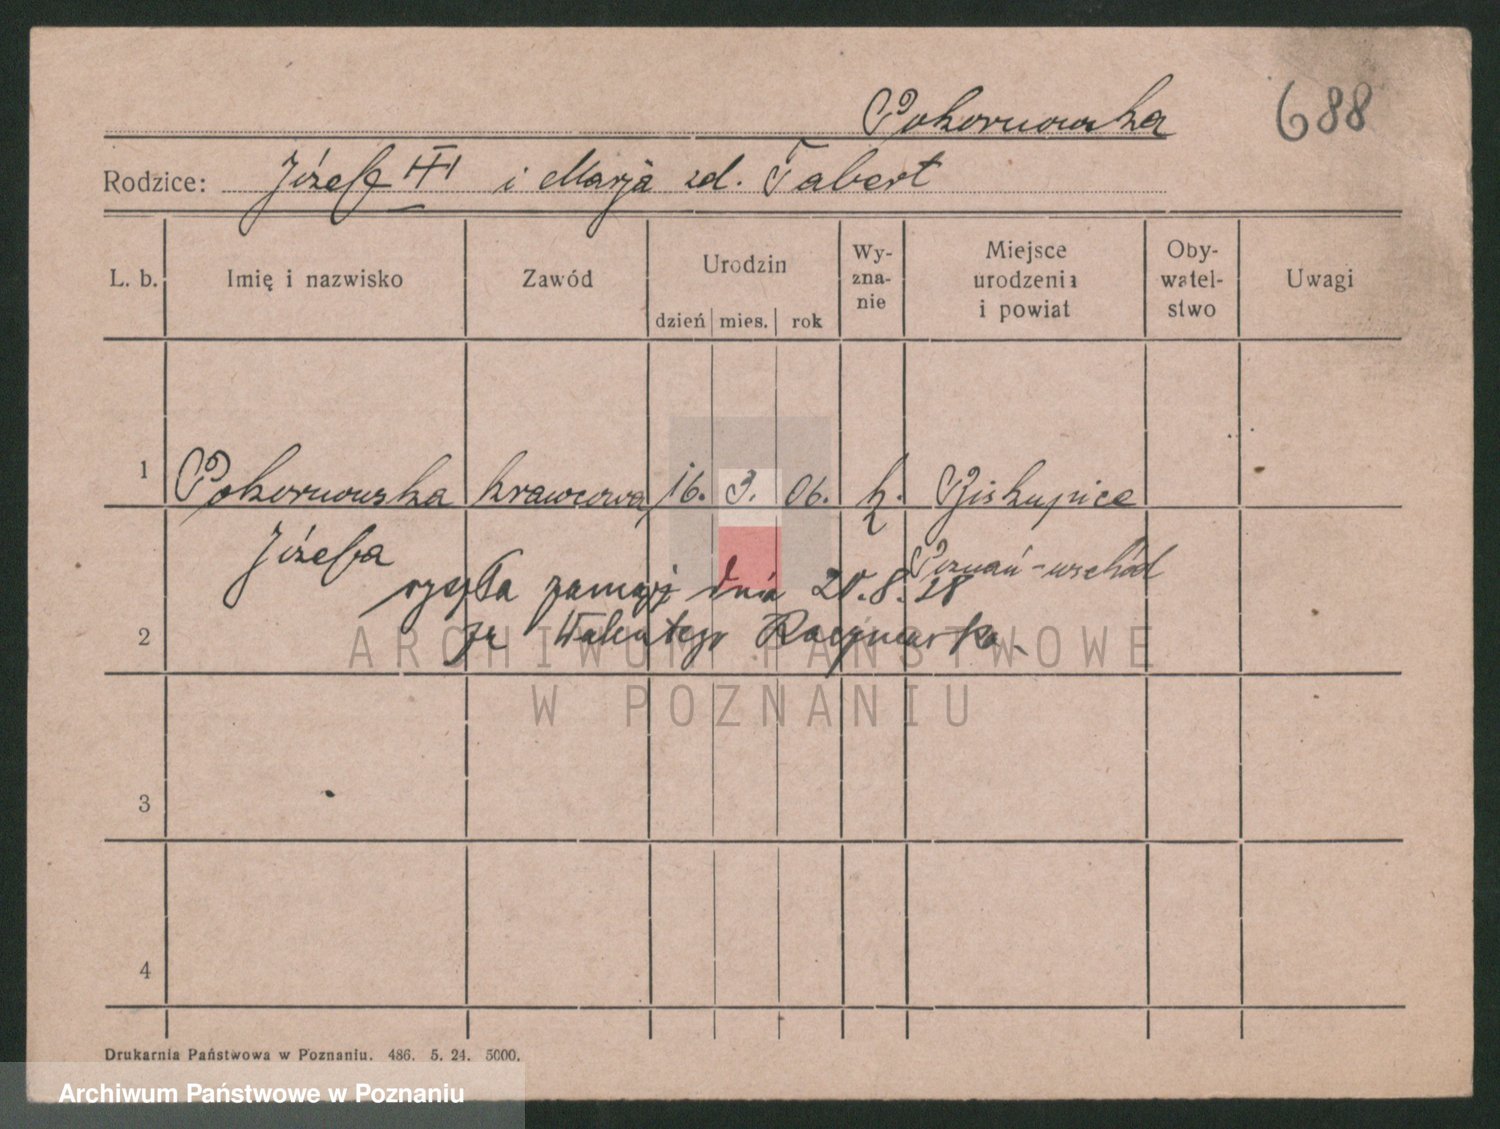 Pokornowska 688
Rodzice: Józef III i Marja zd. Tabert
L. b. Imię i nazwisko Zawód Urodzin dzień mies. rok Wy-zna-nie Miejsce urodzenia i powiat Oby-watel-stwo Uwagi
1 Pokornowska krawcowa 16. 3. 06. k. Biskupice
Józefa Poznań-wschód
wyszła zamąż dnia 20.8.28
2 za Walentego Kaczmarka
ARCHIWUM PAŃSTWOWE
W POZNANIU
3
4
Drukarnia Państwowa w Poznaniu. 486. 5. 24. 5000.
Archiwum Państwowe w Poznaniu